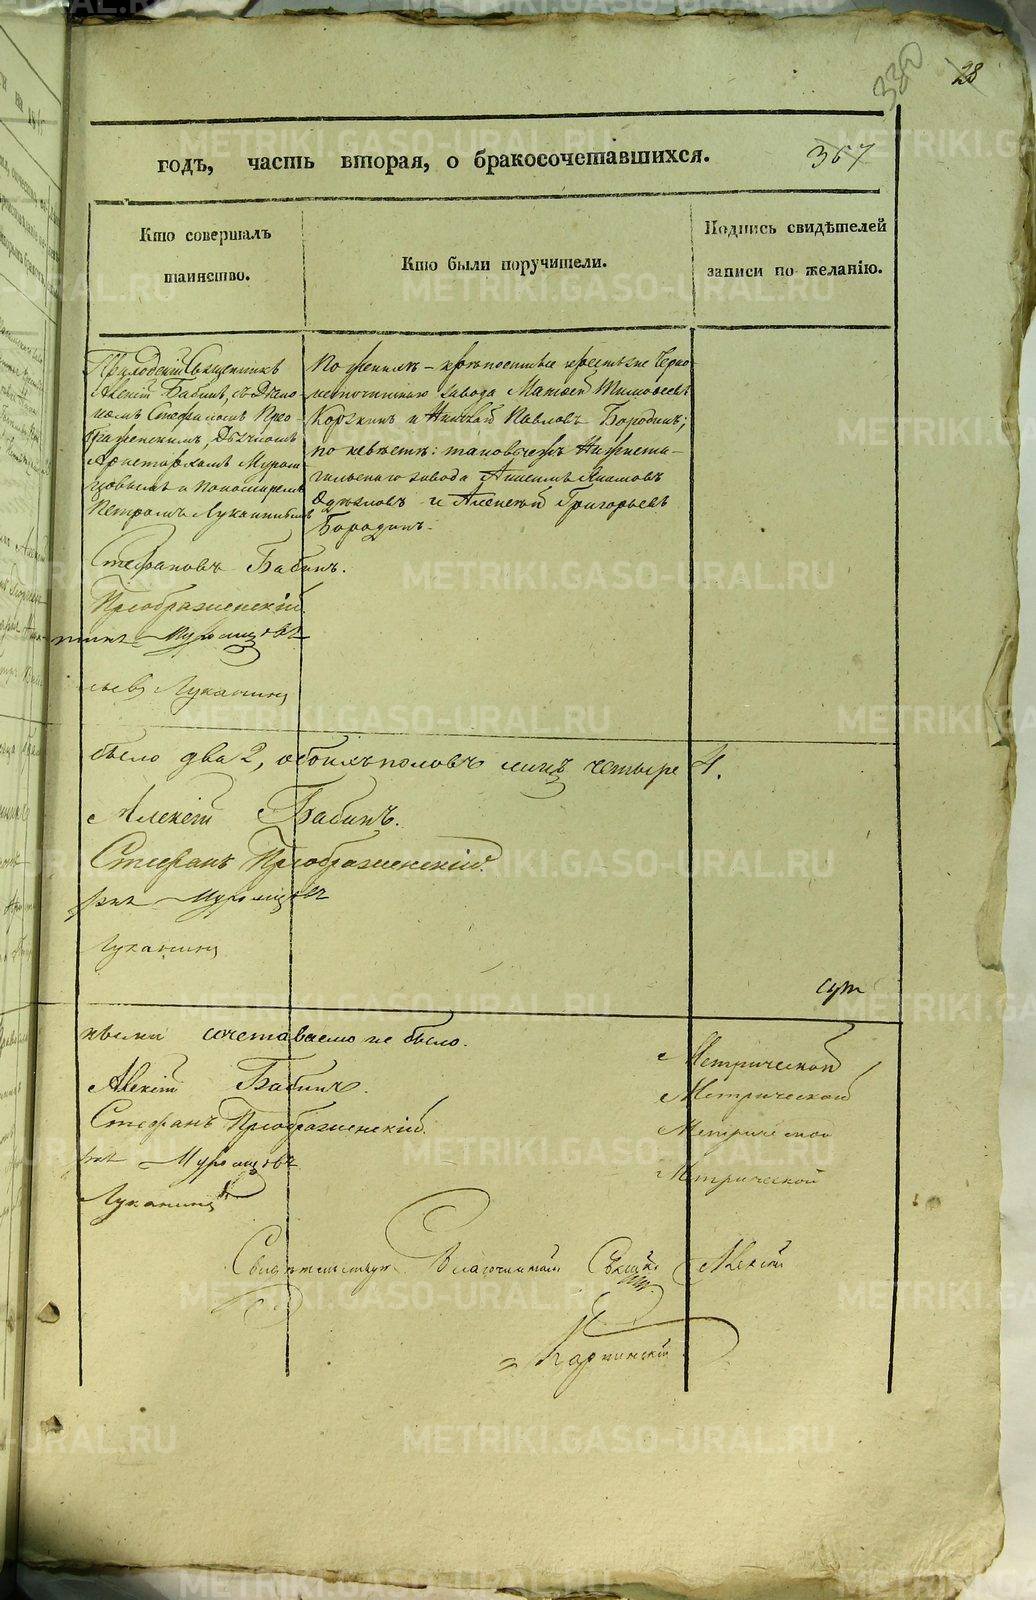 380
28
367
годъ, часть вторая, о бракосочетавшихся.
Кто совершалъ таинство.
Кто были поручители.
Подпись свидѣтелей записи по желанію.
Приходскій Священникъ
Алексій Бабинъ, съ Діако-
номъ Стефаномъ Прео-
браженскимъ, Дьячкомъ
Аристархомъ Муром-
цовымъ и Пономаремъ
Петромъ Луканинымъ
По женихѣ – крѣпостные крестьяне Черно-
источинскаго завода Матвей Тимофеевъ
и Николай Павловъ Бородинъ;
по невѣстѣ: таковыежъ Нижнета-
гильскаго завода
и Алексѣй Григорьевъ
Бородинъ.
Стефановъ Бабинъ.
Преображенскій
Муромцовъ
Луканинъ
было два 2, обоихъ половъ лицъ четыре 4.
Алексій Бабинъ.
Стефанъ Преображенскій.
Муромцовъ
Луканинъ
сут
сочетаваемо не было.
Алексій Бабинъ.
Стефанъ Преображенскій.
Муромцовъ
Луканинъ
Метрической
Метрической
Метрической
Метрической
Благочинный Алексій
Карпинскій
METRIKI.GASO-URAL.RU